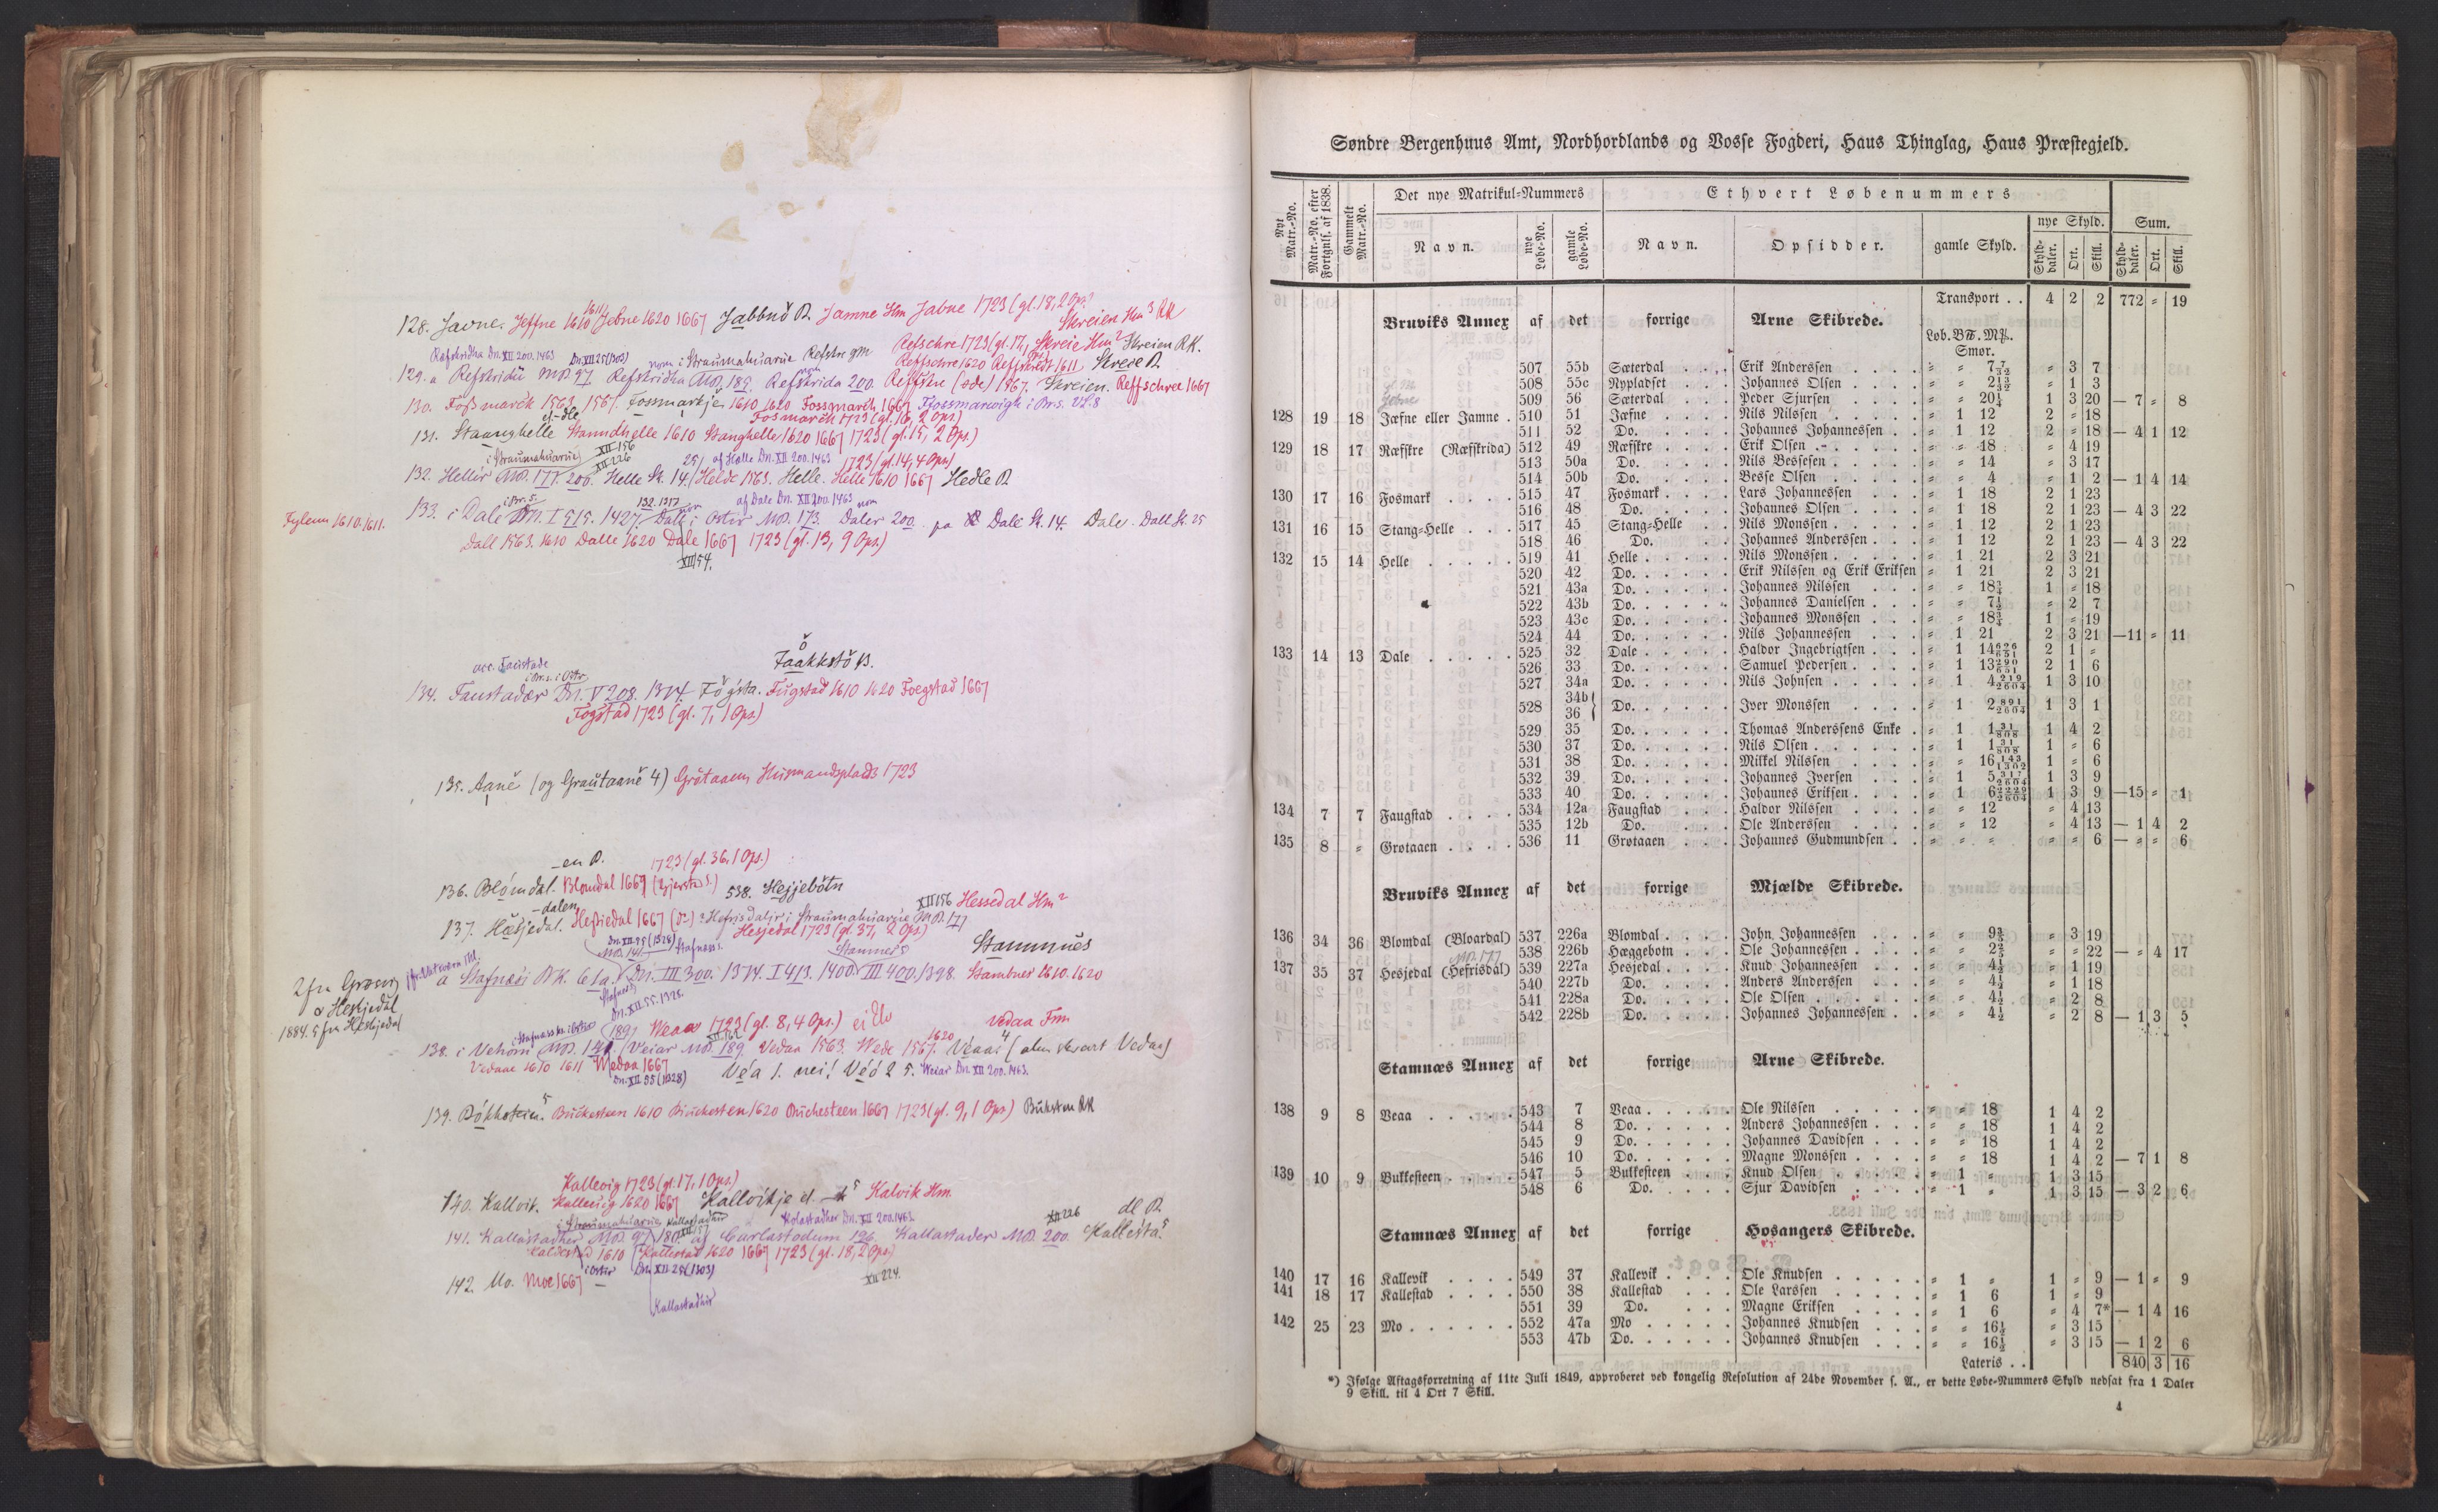 128. Javne. Jeffne 1610 1611 Jebne 1620 1667 Jabbnŏ R. Jamne Hm Jabne 1723 (gl. 18, 2 Ops.)
Skreien Hm 3 RK
Refskridha Dn. XII 200. 1463 Dn. XII 25 (1303) nom i Straumahuarue Refskr gm Refschre 1723 (gl. 17, Skreie Hm 2 Skreien RK.
Reffschre 1620 Reffskredt 1611 Skreie R
129. a Refskridu MR. 97. Refskridha MR. 189. Refskrida 200. Reffskre (øde) 1567. Skreien. Reffschree 1667
130. Fossmarck 1563. 1567. Fossmarkje 1610 1620 Fossmarch 1667 Ffossmarwigh i Brs.
Fosmarch 1723 (gl. 16, 2 Ops)
131. Staanghelle Stanndhelle 1610 Stanghelle 1620 1667 1723 (gl. 15, 2 Ops.)
i Straumahuarue XII 156 XII 226 25/ af Halle Dn. XII 200. 1463 1723 (gl. 14, 4 Ops)
132. Hellir MR. 177. 200. Helle Sk. 14. Helde 1563. Helle. Helle 1610 1667 Hedle R
132. 1317 af Dale Dn. XII 200. 1463 nom
Fylenn 1610. 1611. 133. i Dale Dn. I 515. 1427. Dall i Ostir MR. 173. Daler 200. pa Dale Sk. 14. Dale. Dall Sk. 25
Dall 1563. 1610 Dalle 1620 Dale 1667 1723 (gl. 13, 9 Ops.)
XII 154.
acc. Faustade Faakkstŏ R.
134. Faustader Dn. V 208. 1374. Fŏgsta. Fugstad 1610 1620 Foegstad 1667
Fogstad 1723 (gl. 7, 1 Ops)
135. Aanĕ (og Grautaanĕ 4) Grøtaaen Husmandsplads 1723
-en R. 1723 (gl. 36, 1 Ops.)
136. Blómdal. Blomdal 1667 538. Hejjebótn
-dalen XII 156 Hessedal Hm 2
137. Hæsjedal. Hessiedal 1667 ? Hefrisdalir i Straumahuarue MR. 177
Hesjedal 1723 (gl. 37, 2 Ops.)
Dn. XII 95 (1328) Stafness. Stammes Stammnes
a Stafnesi BK. 61a. Dn. III 300. 1374. I 413. 1400. III 400. 1398. Stambnes 1610. 1620
2 fra Græsvig
& Heskjedal
1884. 5 fra Heskjedal
Stafnes Dn. XII 55. 1328.
Weaa 1723 (gl. 8, 4 Ops.) Vedaa Fm
138. i Vehom MR. 141. Veiar MR. 189. Vedaa 1563. Wede 1567. 1620 Veaae 4
Vedaae 1610 1611 Wedaa 1667 Véa 1. nei! Véó 2 5. Weiar Dn. XII 200. 1463.
Dn. XII 95 (1328)
139. Bókkstein. 5 Buckesteen 1610 Buckesten 1620 Buchesteen 1667 1723 (gl. 9, 1 Ops) Buksten RK
Kallevig 1723 (gl. 17, 1 Ops.)
140. Kallvik. Kallevig 1620 1667 Kallvikje 5 Kalvik Hm.
i Straumahuarue Kallastadhir Kolastadher Dn. XII 200. 1463 XII 226 dl R.
141. Kallastadher MR. 97. 180. af Carlastodum 126. Kallastader MR. 200. Kallesta. 5
Kaldestad 1610 Kallestad 1620 1667 1723 (gl. 18, 2 Ops.)
i Ostir Dn. XII 25 (1303) XII 224.
142. Mo. Moe 1667
Kallastadhir
Søndre Bergenhuus Amt, Nordhordlands og Vosse Fogderi, Haus Thinglag, Haus Præstegjeld.
Nyt Matr.-No. Matr.-No. efter Fortgnls. af 1838. Gammelt Matr.-No. Det nye Matrikul-Nummers Ethvert Løbenummers
Navn. nye Løbe-No. gamle Løbe-No. Navn. Opsidder. gamle Skyld. nye Skyld. Sum.
Skylddaler. Ort. Skill. Skylddaler. Ort. Skill.
Transport . . 4 2 2 772 = 19
Bruviks Annex af det forrige Arne Skibrede.
Løb. B℔. M℔.
Smør.
507 55b Sæterdal Erik Anderssen = = 7 7/32 = 3 7
508 55c Nypladset Johannes Olsen = = 2 13/32 = 1 3
509 56 Sæterdal Peder Sjursen = = 20 1/4 1 3 20 — 7 = 8
128 19 18 Jæfne eller Jamne . 510 51 Jæfne Nils Nilssen = 1 12 2 = 18
511 52 Do. Johannes Johannessen = 1 12 2 = 18 — 4 1 12
129 18 17 Ræfskre (Ræfskrida) 512 49 Ræfskre Erik Olsen = = 18 = 4 19
513 50a Do. Nils Bessesen = = 14 = 3 17
514 50b Do. Besse Olsen = = 4 = 1 2 — 1 4 14
130 17 16 Fosmark 515 47 Fosmark Lars Johannessen = 1 18 2 1 23
516 48 Do. Johannes Olsen = 1 18 2 1 23 — 4 3 22
131 16 15 Stang-Helle 517 45 Stang-Helle Nils Monssen = 1 12 2 1 23
518 46 Do. Johannes Anderssen = 1 12 2 1 23 — 4 3 22
132 15 14 Helle 519 41 Helle Nils Monssen = 1 21 2 3 21
520 42 Do. Erik Nilssen og Erik Eriksen = 1 21 2 3 21
521 43a Do. Johannes Nilssen = = 18 3/4 1 = 18
522 43b Do. Johannes Danielsen = = 7 1/2 = 2 7
523 43c Do. Johannes Monssen = = 18 3/4 1 = 19
524 44 Do. Nils Johannessen = 1 21 2 3 21 — 11 = 11
133 14 13 Dale 525 32 Dale Haldor Ingebrigtsen = 1 14 626/651 2 1 =
526 33 Do. Samuel Pedersen = 1 13 290/651 2 1 6
527 34a Do. Nils Johnsen = 1 4 219/2604 1 3 10
528 34b 36 Do. Iver Monssen = 1 2 891/2604 1 3 1
529 35 Do. Thomas Anderssens Enke = 1 1 31/808 1 4 2
530 37 Do. Nils Olsen = 1 1 31/808 1 = 6
531 38 Do. Mikkel Nilssen = = 16 143/1302 1 = 6
532 39 Do. Johannes Iversen = 1 5 317/2604 1 3 9
533 40 Do. Johannes Eriksen = 1 6 2229/2604 1 3 9 — 15 = 1
134 7 7 Faugstad 534 12a Faugstad Haldor Nilssen = = 12 = 4 13
535 12b Do. Ole Anderssen = = 12 = 4 13 — 1 4 2
135 8 = Grøtaaen 536 11 Grøtaaen Johannes Gudmundsen = = = = = 6 — = = 6
Bruviks Annex af det forrige Mjælde Skibrede.
136 34 36 Blomdal (Bloardal) 537 226a Blomdal John Johannessen = = 9 3/5 = 3 19
538 226b Hæggebotn Ole Johannessen = = 2 2/5 = = 22 — = 4 17
MR. 177
137 35 37 Hesjedal (Hefrisdal) 539 227a Hesjedal Knud Johannessen = = 4 1/2 = 1 19
540 227b Do. Anders Anderssen = = 4 1/2 = 1 18
541 228a Do. Ole Olsen = = 4 1/2 = 2 8
542 228b Do. Johannes Johannessen = = 4 1/2 = 2 8 — 1 3 5
Stamnæs Annex af det forrige Arne Skibrede.
138 9 8 Veaa 543 7 Veaa Ole Nilssen = = 18 1 4 2
544 8 Do. Anders Johannessen = = 18 1 4 2
545 9 Do. Johannes Davidsen = = 18 1 4 2
546 10 Do. Magne Monssen = = 18 1 4 2 — 7 1 8
139 10 9 Bukkesteen 547 5 Bukkesteen Knud Olsen = 1 = 1 3 15
548 6 Do. Sjur Davidsen = 1 = 1 3 15 — 3 2 6
Stamnæs Annex af det forrige Hosangers Skibrede.
140 17 16 Kallevik 549 37 Kallevik Ole Knudsen = 1 = 1 = 9 — 1 = 9
141 18 17 Kallestad 550 38 Kallestad Ole Larssen = 1 6 1 = 9
551 39 Do. Magne Eriksen = 1 6 = 4 7* — 1 4 16
142 25 23 Mo 552 47a Mo Johannes Knudsen = = 16 1/2 = 3 15
553 47b Do. Johannes Knudsen = = 16 1/2 = 3 15 — 1 2 6
Lateris . . 840 3 16
*) Ifølge Aftagsforretning af 11te Juli 1849, approberet ved kongelig Resolution af 24de November s. A., er dette Løbe-Nummers Skyld nedsat fra 1 Daler
9 Skill. til 4 Ort 7 Skill.
4